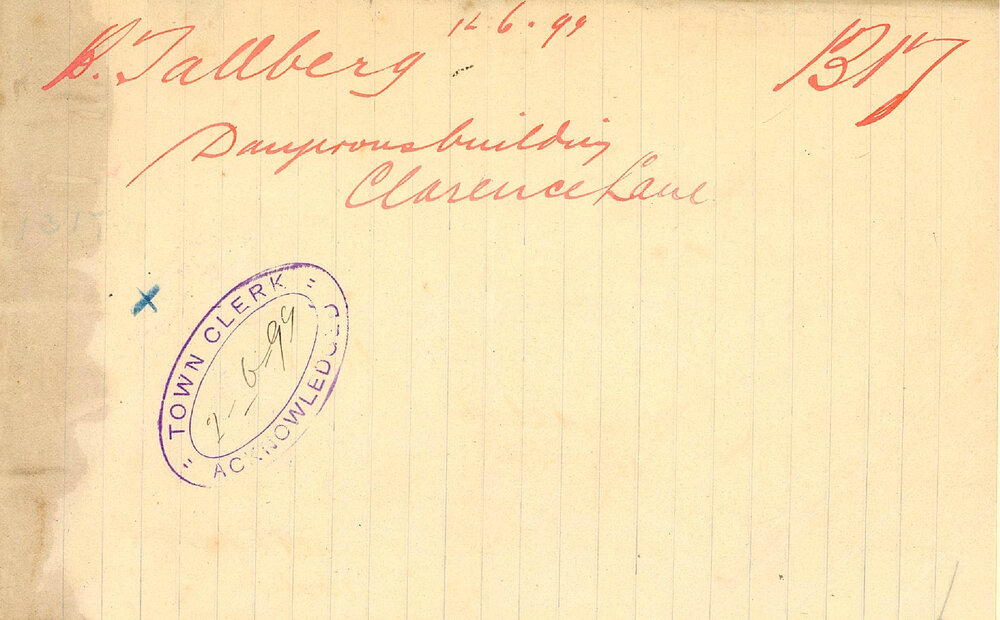 12.6.99
B. Tallberg 1317
Dangerous building
Clarence Lane
1315
" TOWN CLERK "
2-6-99
ACKNOWLEDGED